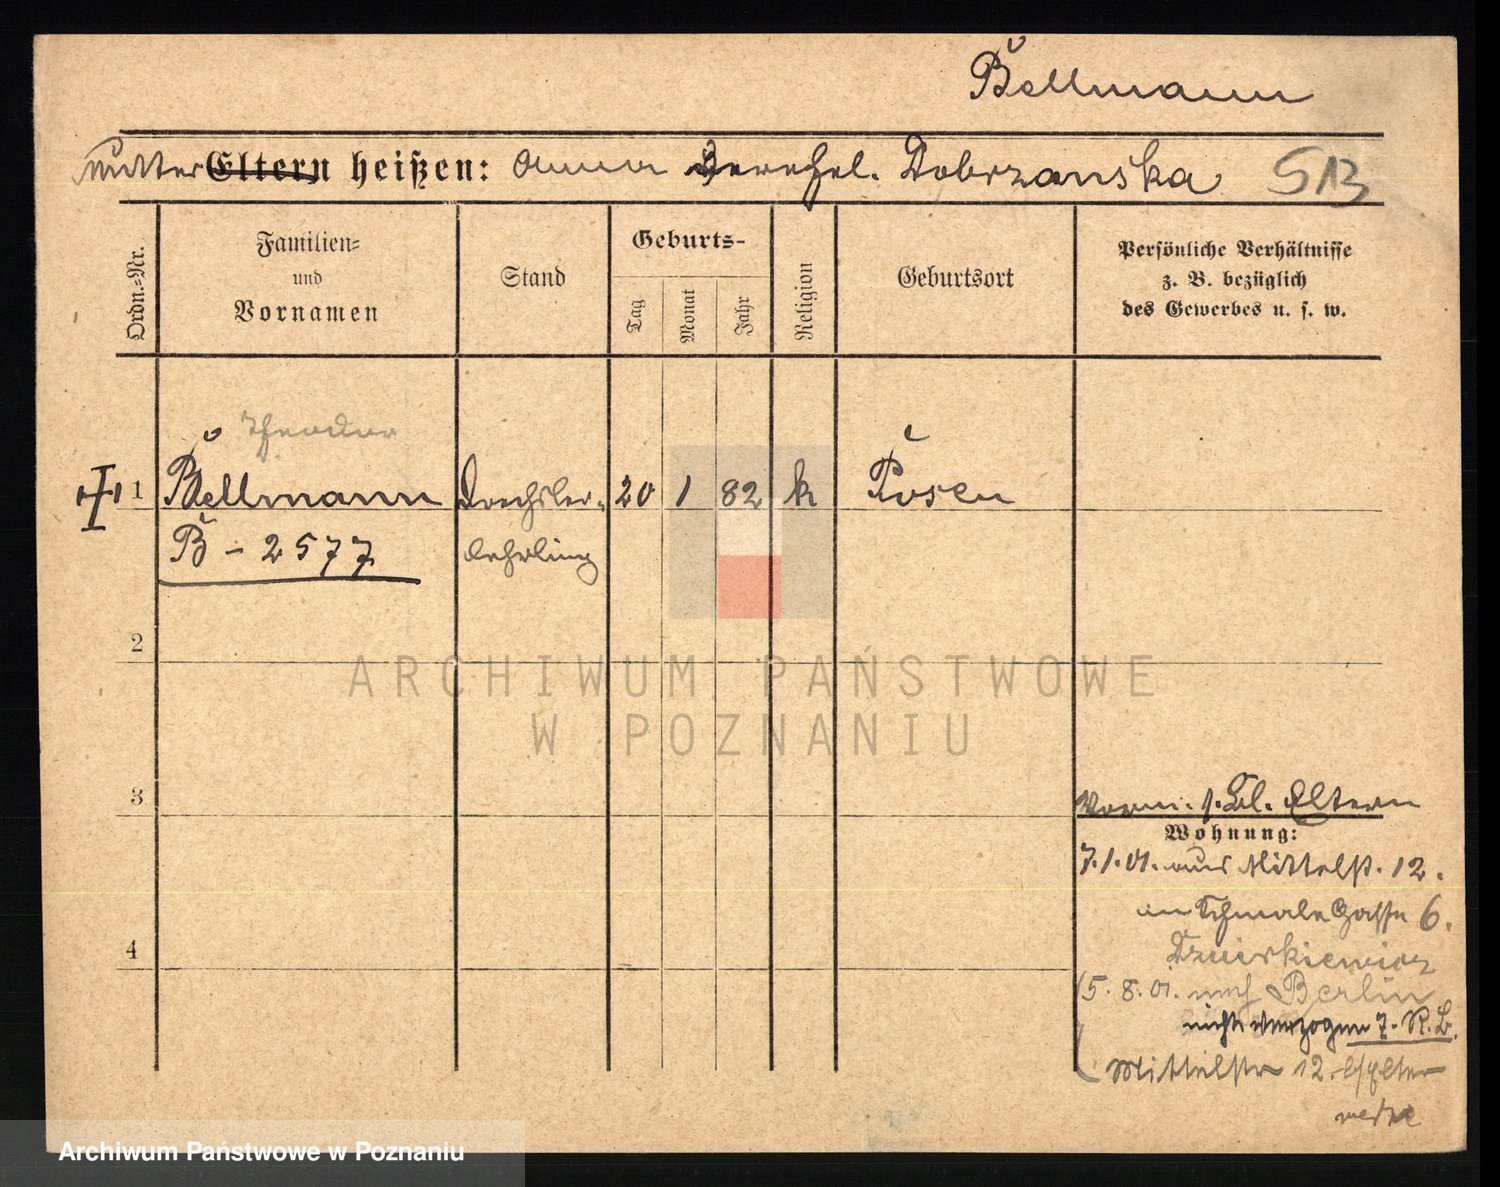 Bellmann
Mutter Eltern heißen: Anna verehel. Dobrzanska 513
Ordn.-Nr.
Familien-
und
Vornamen
Stand
Geburts-
Tag
Monat
Jahr
Religion
Geburtsort
Persönliche Verhältnisse
z. B. bezüglich
des Gewerbes u. s. w.
Theodor
1 Bellmann Drechsler- 20 1 82 k Posen
B - 2577 Lehrling
2
ARCHIWUM PAŃSTWOWE
W POZNANIU
3
Vorm. s. Bl. Eltern
Wohnung:
7.1.01. aus Mittelst. 12.
in Schmale Gasse 6.
4
15.8.01. nach Berlin
nicht verzogen z. R. B.
Mittelstr 12
Archiwum Państwowe w Poznaniu